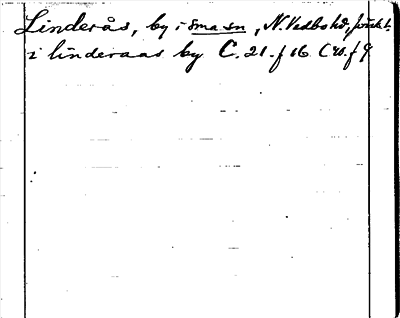 Linderås, by i sma sn, N. Vedbo hd,
i linderaas by C. 21. f 16 C 40. f 9